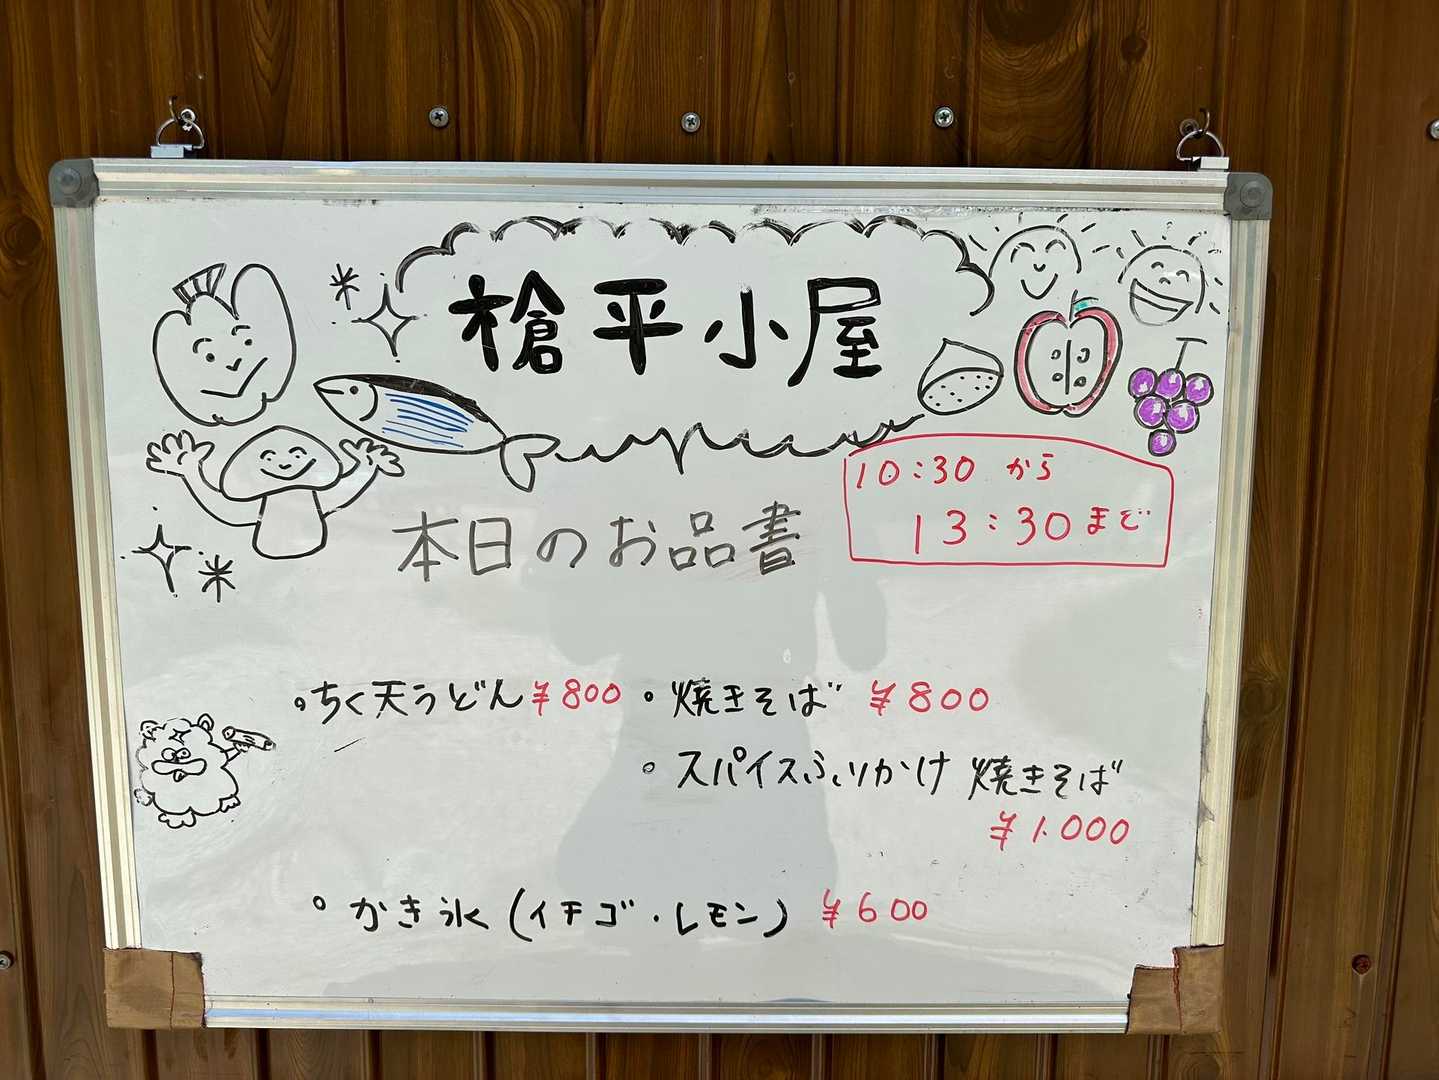 槍平小屋
10:30 から
13:30 まで
本日のお品書
・ちく天うどん ¥800 ・焼きそば ¥800
・スパイスふりかけ 焼きそば
¥1.000
・かき氷 (イチゴ・レモン) ¥600